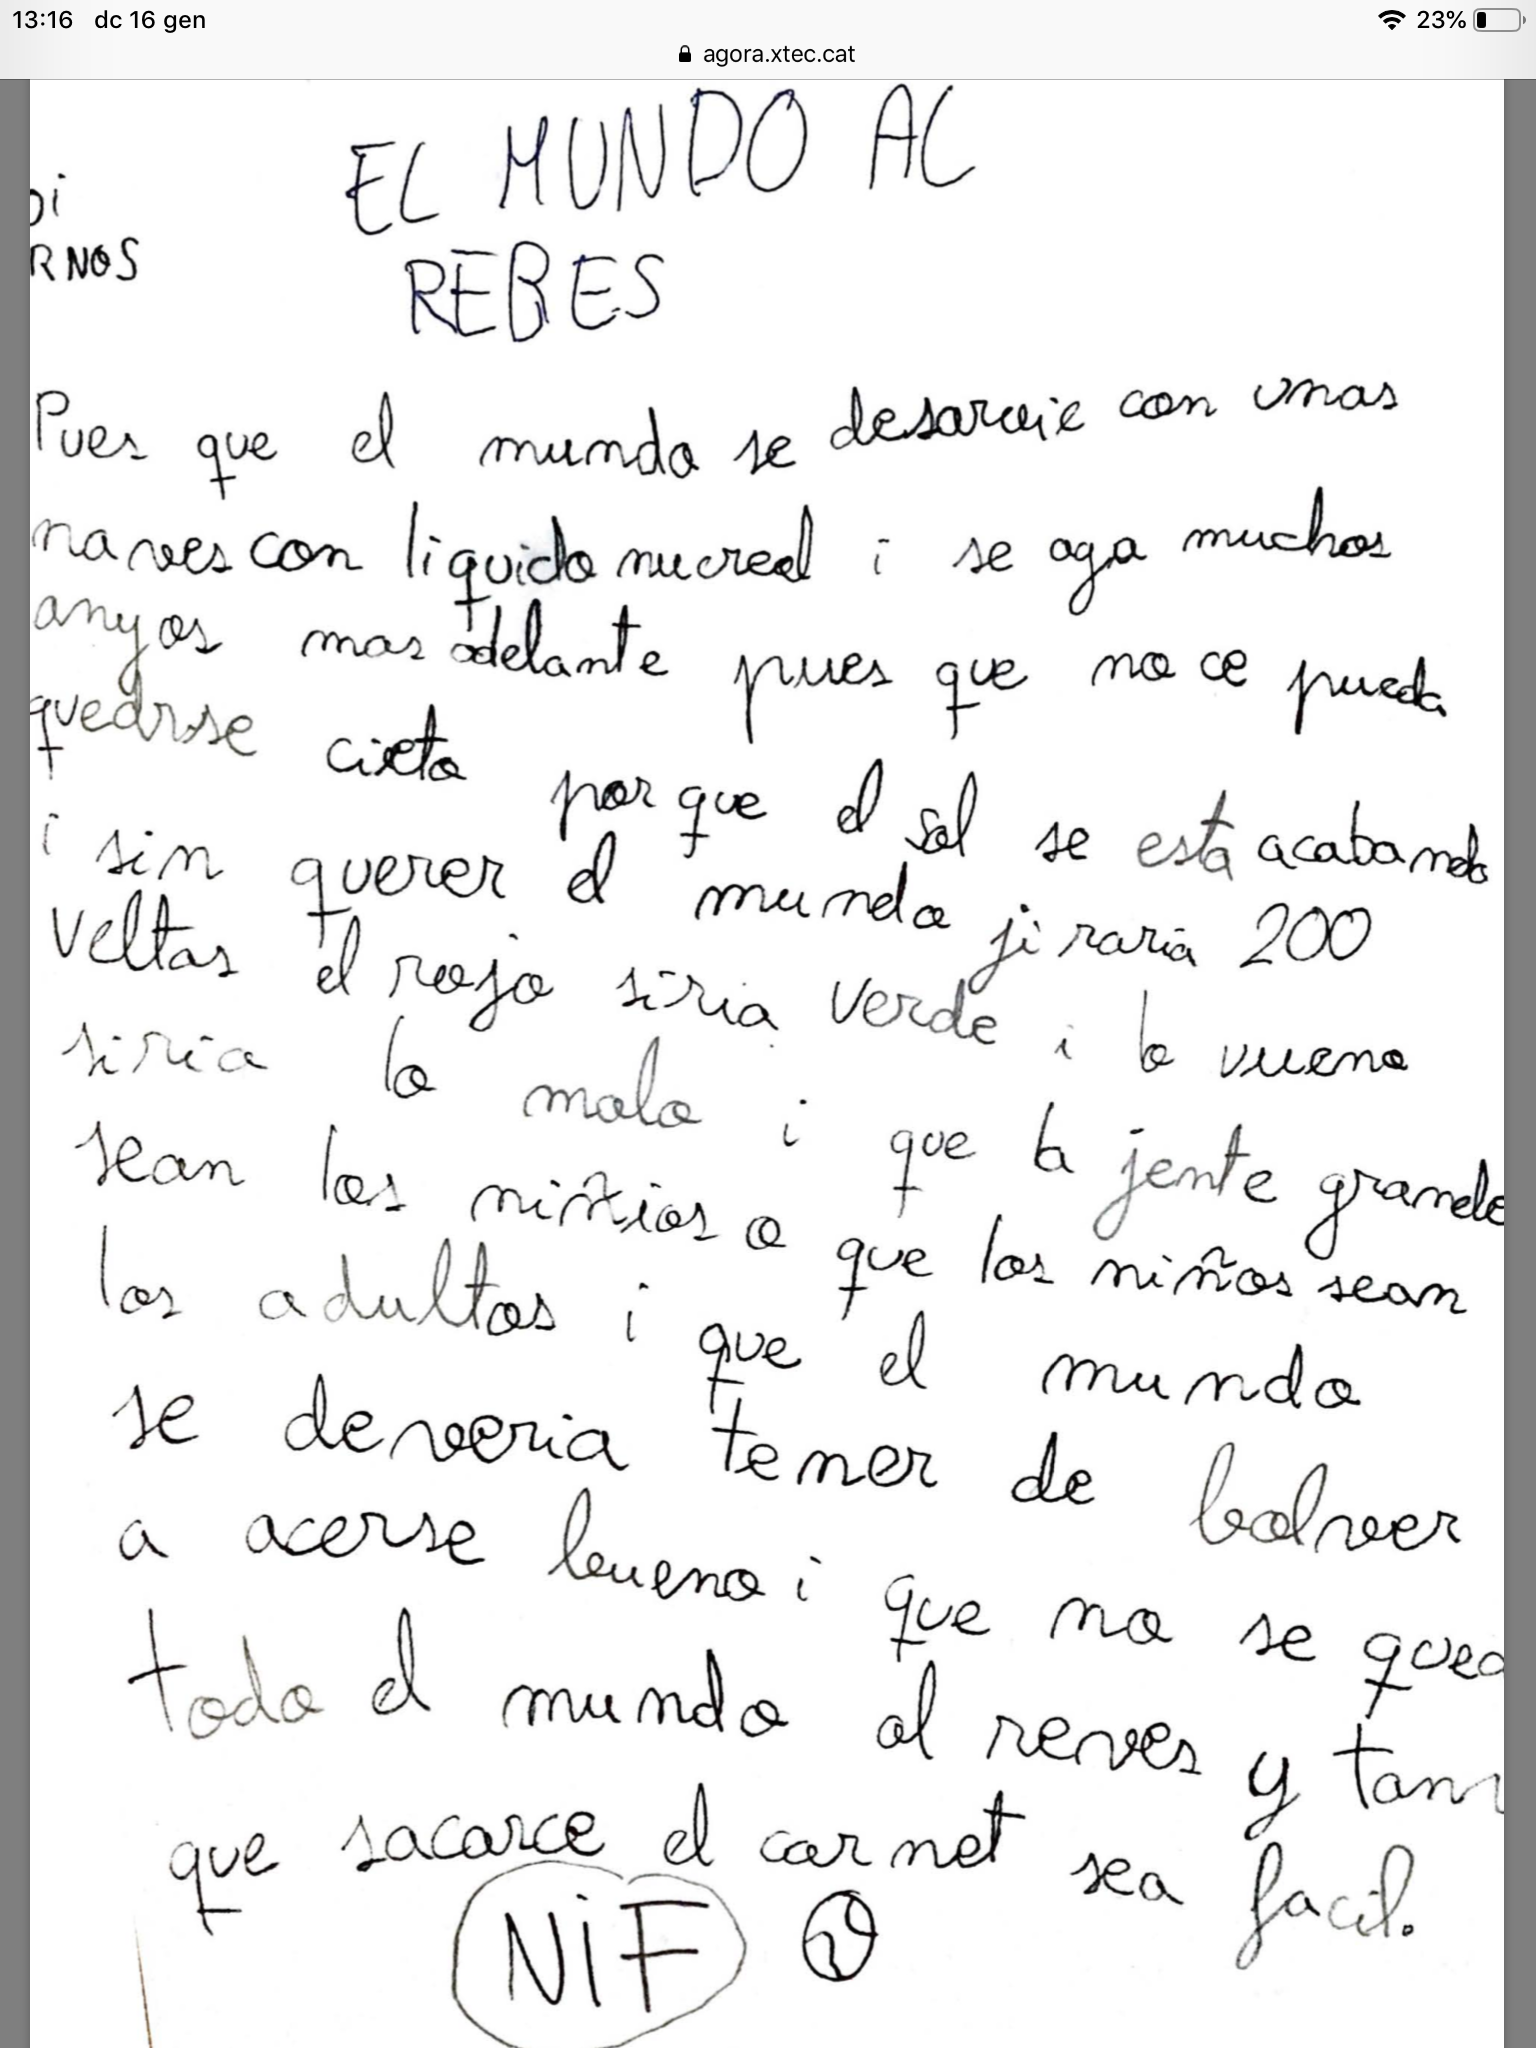 13:16 dc 16 gen 23%
agora.xtec.cat
EL MUNDO AL
oi
RNOS
REBES
Pues que el mundo se con unas
naves con liquido nucreal i se aga muchos
anyos mas adelante pues que no ce pueda
quedrse cieto por que el sol se esta acabando
i sin querer el mundo jiraria 200
veltas el rojo siria verde i lo vueno
siria lo malo i que la jente grande
sean los niñios o que los niños sean
los adultos i que el mundo
se deveria tener de bolver
a acerse bueno i que no se qued
todo el mundo al reves y tam
que sacarce el carnet sea facil.
NiF